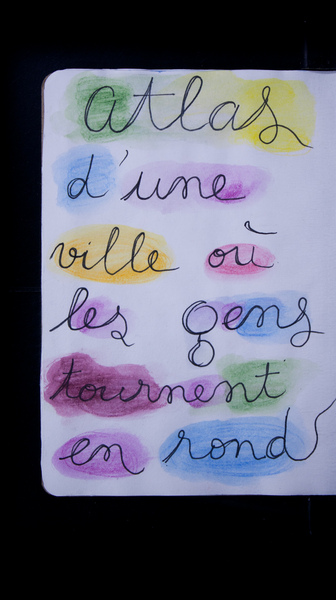 atlas
d'une
ville où
les gens
tournent
en rond